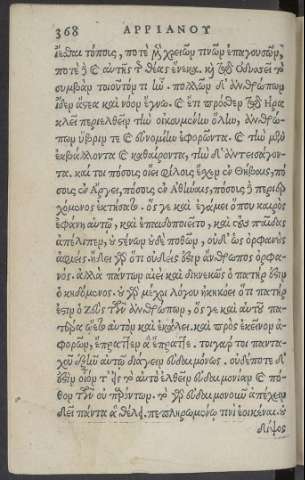 368 ΑΡΡΙΑΝΟΥ
ἰέσθαι τόπους, ποτὲ μὲν χρειῶν τινῶν ἐπαγουσῶν,
ποτὲ δὲ καὶ αὐτῆς τῆς θέας ἕνεκα. καὶ τῷ Ὀδυσσεῖ τὸ
συμβὰν τοιοῦτόν τι ἦν. πολλῶν δ' ἀνθρώπων
ἴδεν ἄστεα καὶ νόον ἔγνω. καὶ ἔτι πρόσθεν τῷ Ἡρα
κλεῖ περιελθεῖν τὴν οἰκουμένην ὅλην, ἀνθρώ-
πων ὕβριν τε καὶ εὐνομίην ἐφορῶντα. καὶ τὴν μὲν
ἐκβάλλοντα καὶ καθαίροντα, τὴν δ' ἀντεισάγον-
τα. καί τοι πόσους οἴει φίλους ἔσχεν ἐν Θήβαις, πό
σους ἐν Ἄργει, πόσους ἐν Ἀθήναις, πόσους δὲ περιερ
χόμενος ἐκτήσατο. ὅς γε καὶ ἐγάμει ὅπου καιρὸς
ἐφάνη αὐτῷ, καὶ ἐπαιδοποιεῖτο, καὶ τοὺς παῖδας
ἀπέλειπεν, οὐ στένων οὐδὲ ποθῶν, οὐδ' ὡς ὀρφανοὺς
ἀφιείς. ᾔδει γὰρ ὅτι οὐδείς ἐστιν ἄνθρωπος ὀρφα-
νός. ἀλλὰ πάντων αἰεὶ καὶ διηνεκῶς ὁ πατήρ ἐστιν
ὁ κηδόμενος. οὐ γὰρ μέχρι λόγου ἠκηκόει ὅτι πατήρ
ἐστιν ὁ Ζεὺς τῶν ἀνθρώπων, ὅς γε καὶ αὑτοῦ πα-
τέρα ᾤετο αὐτὸν καὶ ἐκάλει. καὶ πρὸς ἐκεῖνον ἀ-
φορῶν, ἔπραττεν ἃ ἔπραττε. τοιγάρ τοι παντα-
χοῦ ἐξῆν αὐτῷ διάγειν εὐδαιμόνως. οὐδέποτε δέ
ἐστιν οἷόν τ' εἰς τὸ αὐτὸ ἐλθεῖν εὐδαιμονίαν καὶ πό-
θον τῶν οὐ παρόντων. τὸ γὰρ εὐδαιμονοῦν ἀπέχειν
δεῖ πάντα ἃ θέλει. πεπληρωμένῳ τινὶ ἐοικέναι. οὐ
δίψος